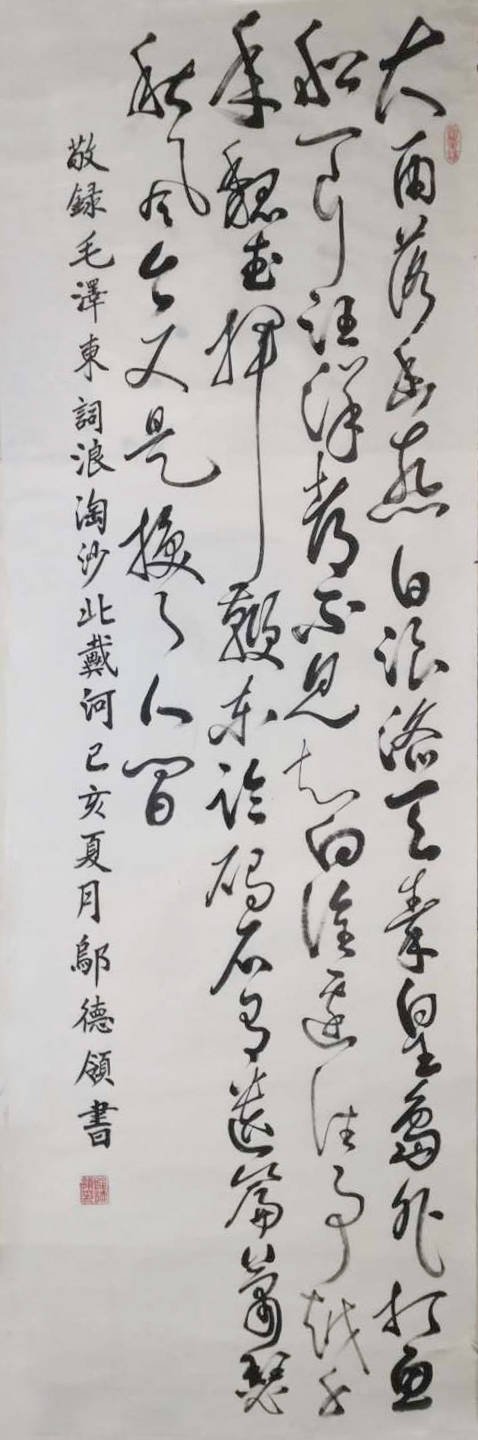 大雨落幽燕白浪滔天秦皇島外打魚
船一片汪洋都不見知向誰邊往事越千
年魏武揮鞭東臨碣石有遺篇蕭瑟
秋風今又是換了人間
敬録毛澤東詞浪淘沙北戴河己亥夏月鄔德領書